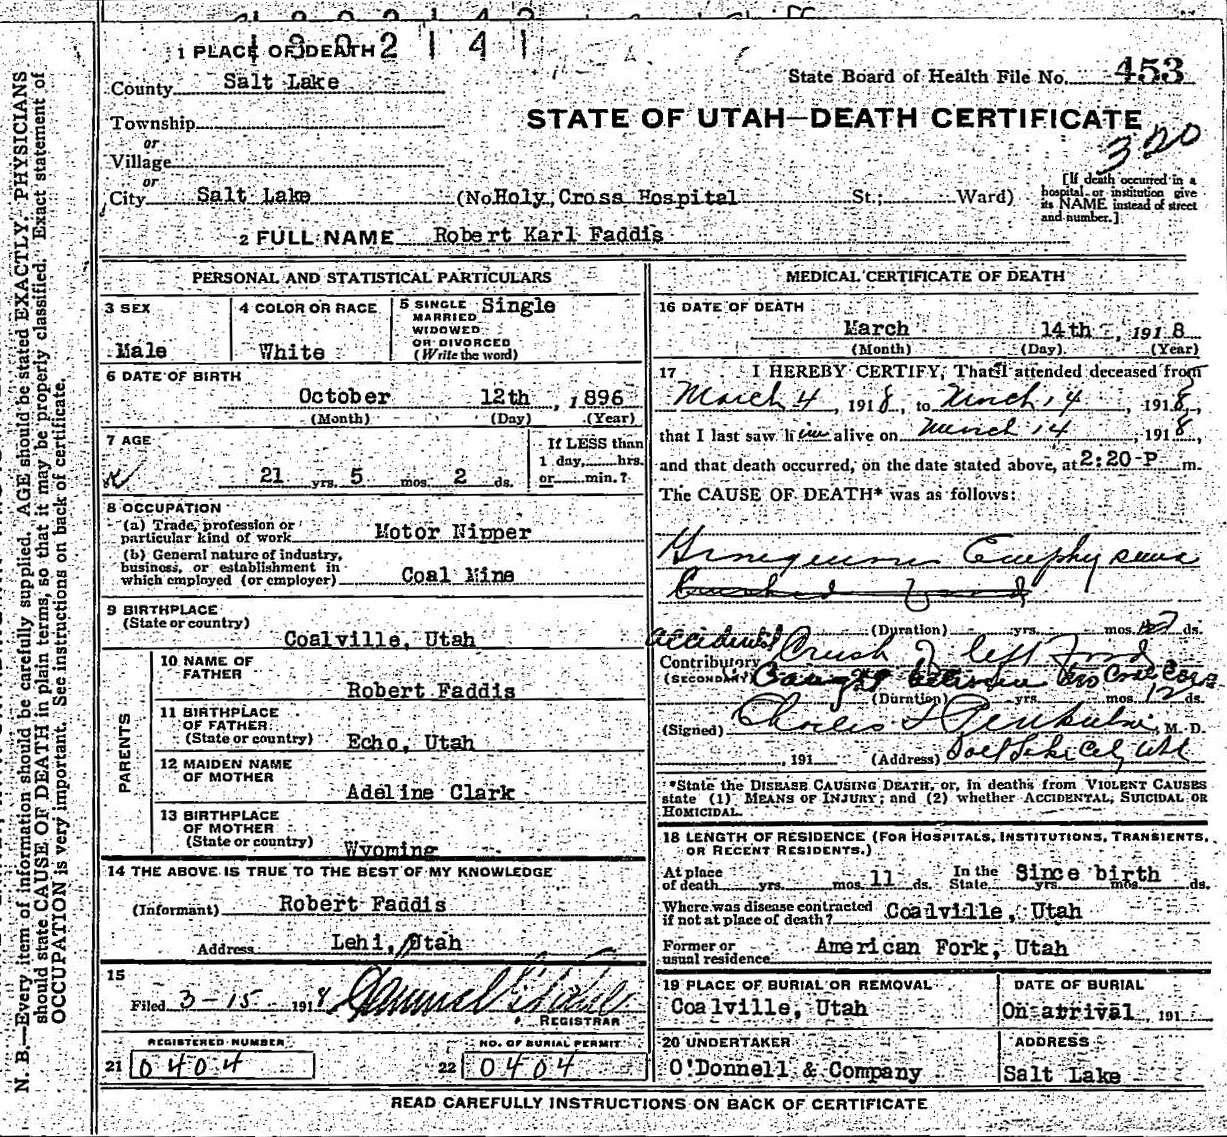 1302141
1 PLACE OF DEATH
County Salt Lake
State Board of Health File No. 453
Township
STATE OF UTAH—DEATH CERTIFICATE
or
320
Village
or
City Salt Lake (No Holy Cross Hospital St.; Ward)
[If death occurred in a
hospital or institution give
its NAME instead of street
and number.]
2 FULL NAME Robert Karl Faddis
PERSONAL AND STATISTICAL PARTICULARS
3 SEX
Male
4 COLOR OR RACE
White
5 SINGLE
MARRIED
WIDOWED
OR DIVORCED
(Write the word)
Single
6 DATE OF BIRTH
October 12th, 1896
(Month) (Day) (Year)
7 AGE
21 yrs. 5 mos. 2 ds.
If LESS than
1 day, hrs.
or min.?
8 OCCUPATION
(a) Trade, profession or
particular kind of work Motor Nipper
(b) General nature of industry,
business, or establishment in
which employed (or employer) Coal Mine
9 BIRTHPLACE
(State or country)
Coalville, Utah
PARENTS
10 NAME OF
FATHER
Robert Faddis
11 BIRTHPLACE
OF FATHER
(State or country) Echo, Utah
12 MAIDEN NAME
OF MOTHER
Adeline Clark
13 BIRTHPLACE
OF MOTHER
(State or country)
Wyoming
14 THE ABOVE IS TRUE TO THE BEST OF MY KNOWLEDGE
(Informant) Robert Faddis
Address Lehi, Utah
15
Filed 3-15 1918
REGISTRAR
REGISTERED NUMBER
21 0404
NO. OF BURIAL PERMIT
22 0404
MEDICAL CERTIFICATE OF DEATH
16 DATE OF DEATH
March 14th, 1918
(Month) (Day) (Year)
17 I HEREBY CERTIFY, That I attended deceased from
March 4, 1918, to March 14, 1918,
that I last saw him alive on March 14, 1918,
and that death occurred, on the date stated above, at 2:20 P m.
The CAUSE OF DEATH* was as follows:
Emphysema
(Duration) yrs. mos. ds.
accidental Crush of left
Contributory
(SECONDARY) Caught between two Coal Cars
(Duration) yrs. mos. 12 ds.
(Signed) Charles, M. D.
, 191 (Address) Salt Lake City, Utah
*State the DISEASE CAUSING DEATH, or, in deaths from VIOLENT CAUSES
state (1) MEANS OF INJURY; and (2) whether ACCIDENTAL, SUICIDAL OR
HOMICIDAL.
18 LENGTH OF RESIDENCE (FOR HOSPITALS, INSTITUTIONS, TRANSIENTS,
OR RECENT RESIDENTS.)
At place
of death yrs. mos. 11 ds.
In the
State Since birth yrs. mos. ds.
Where was disease contracted
if not at place of death? Coalville, Utah
Former or
usual residence American Fork, Utah
19 PLACE OF BURIAL OR REMOVAL
Coalville, Utah
DATE OF BURIAL
On arrival, 191
20 UNDERTAKER
O'Donnell & Company
ADDRESS
Salt Lake
READ CAREFULLY INSTRUCTIONS ON BACK OF CERTIFICATE
N. B.—Every item of information should be carefully supplied. AGE should be stated EXACTLY. PHYSICIANS
should state CAUSE OF DEATH in plain terms, so that it may be properly classified. Exact statement of
OCCUPATION is very important. See instructions on back of certificate.